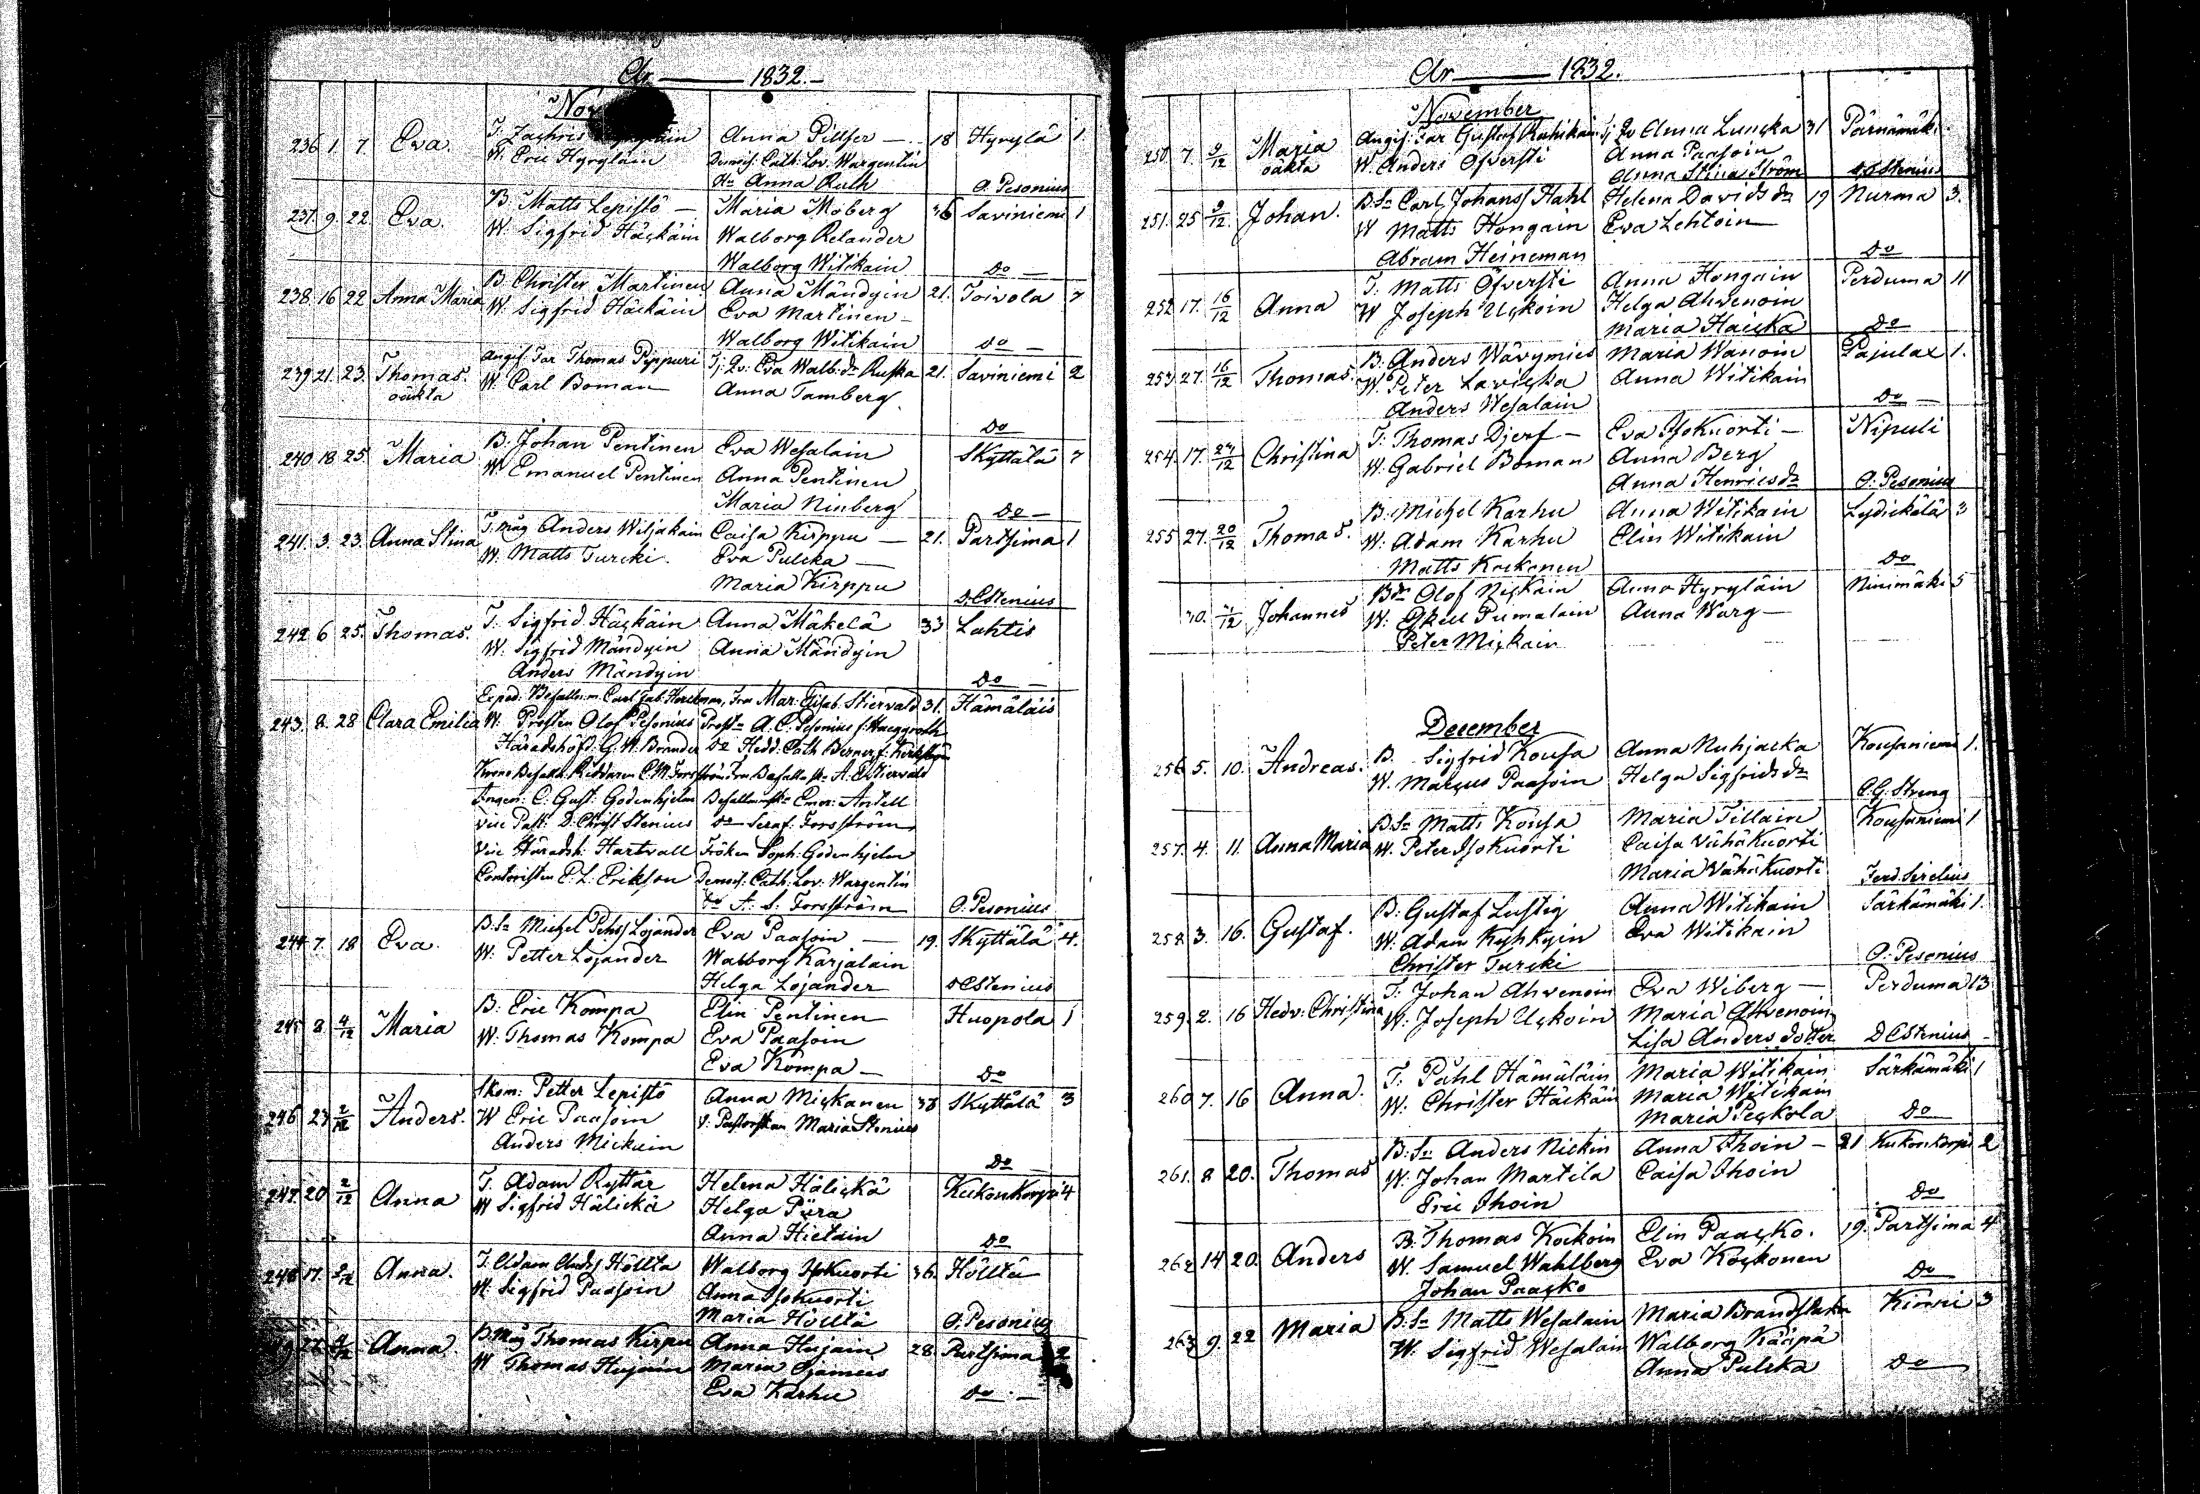 År 1832.
236 1. 7. Eva. T. Zachris Anna Pillser 18 Hyrylä 1.
W. Eric Hyryläin Demois. Cath. Lov. Wargentin
Do Anna Ruth O. Pesonius
237. 9. 22. Eva. B. Matts Lepistö Maria Moberg 36 Saviniemi 1
W. Sigfrid Häckäin Walborg Relander
Walborg Witikain Do
238. 16 22 Anna Maria B. Christer Martinen Anna Mändyin 21. Toivola 7
W. Sigfrid Häckäin Eva Martinen
Walborg Witikain Do
239 21. 23. Thomas. Angif. Far Thomas Pyppuri Tj. Qv. Eva Walb. dr Ruska 21. Saviniemi 2
oäkta W. Carl Boman Anna Tamberg
Do
240 18. 25. Maria B. Johan Pentinen Eva Wesalain Skyttälä 7
W Emanuel Pentinen Anna Pentinen
Maria Ninberg Do
241. 3. 23. Anna Stina T. måg Anders Wiljakain Caisa Kirppu 21. Partsima 1
W. Matts Turcki. Eva Pulcka
Maria Kirppu D. C Stenius
242 6 25. Thomas. T. Sigfrid Häckäin Anna Mäkelä 33 Lahtis
W. Sigfrid Mändyin Anna Mändyin
Anders Mändyin Do
243. 8. 28 Clara Emilia Exped. Befalln.m. Carl Gab. Fru Mar. Elisab. Stiervald 31. Hämäläis
W. Prosten Olof Pesonius Prostn A. C. Pesonius f.
Häradshöfd. G. W. Brander Do Hedd. Cath
C. M. Forsström Fru A. E. Stiervald
C. Gust. Godenhjelm Emer. Antell
Vice Past. D. Christ Stenius Do Seraf. Forsström
Vice Häradsh. Hartvall Fröken Soph. Godenhjelm
Contoristen C. L. Erikson Demois. Cath. Lov. Wargentin
Do A. S. Forsström O. Pesonius
244 7. 18 Eva. B.Sn Michel Pehrss Lojander Eva Paasoin 19. Skyttälä 4.
W. Petter Lojander Walborg Karjalain
Helga Lojander D C Stenius
245 8. 4/12 Maria B. Eric Kompa Elin Pentinen Huopola 1
W. Thomas Kompa Eva Paasoin
Eva Kompa Do
246 23 2/12 Anders. Skom. Petter Lepistö Anna Mickanen 38 Skyttälä 3
W Eric Paasoin V. Pastorskan Maria Stenius
Anders Mickain
Do
247. 20 2/12 Anna T. Adam Ryttar Helena Hälickä Kukonkorpi 4
W Sigfrid Hälickä Helga Püra
Anna Hietain Do
248 17. Anna. T. Adam Anders. Höltta Walborg Isokuorti 36. Hölttä
W. Sigfrid Paasoin Anna Isokuorti
Maria Hölttä O. Pesonius
Anna. B. måg Thomas Kirpu Anna Hujain 28. Partsima 2
W Thomas Hujain Maria Ojamies
Eva Karhu Do
Ar 1832.
November
250. 7. 9/12 Maria Angif. Far Gustaf Tj Qv Anna Luncka 31 Pärnämäki
oäkta W. Anders Öfversti Anna Paasoin
Anna Stina Ström D C Stenius
251. 25 9/12. Johan. B.Sn Carl Johanss Hahl Helena Davidsdr 19 Nurma 3.
W Matts Hongain Eva Lehtoin
Abram Heineman Do
252 17. 16/12 Anna T. Matts Öfversti Anna Hongain Perduma 11
W Joseph Uckoin Helga Ahvenoin
Maria Haicka Do
253 27. 16/12 Thomas. B. Anders Wävymies Maria Wanoin Pajulax 1.
W. Peter Lavicka Anna Witikain
Anders Wesalain Do
254. 17. 24/12 Christina T. Thomas Djerf Eva Isokuorti Nipuli
W. Gabriel Boman Anna Berg
Anna Henricsdr O. Pesonius
255 27. 20/12 Thomas. B. Michel Karhu Anna Witikain Lydickälä 3
W. Adam Karhu Elin Witikain
Matts Kockonen Do
30. Johannes Olof Nickain Anna Hyryläin Ninimäki 5
W. Eskill Pumalain Anna Warg
Peter Mickain
December
256 5. 10. Andreas. B. Sigfrid Kousa Anna Nuhjacka Kousaniemi 1.
W. Marcus Paasoin Helga Sigfridsdr
C. G. Streng
257. 4. 11. Anna Maria B.Sn Matts Kousa Maria Tillain Kousaniemi 1
W. Peter Isokuorti Caisa Vähäkuorti
Maria Vähäkuorti Ferd. Sirelius
258. 3. 16. Gustaf. B. Gustaf Lustig Anna Witikain Särkämäki 1.
W. Adam Kyhkyin Eva Witikain
Christer Turcki O. Pesonius
259. 2. 16 Hedv. Christina T. Johan Ahvenoin Eva Wiberg Perduma 13
W. Joseph Uckoin Maria Ahvenoin
Lisa Andersdotter D C Stenius
260 7. 16 Anna. T. Påhl Hämäläin Maria Witikain Särkämäki 1
W. Christer Häckäin Maria Witikain
Maria Peckola Do
261. 8 20. Thomas B.Sn Anders Nickin Anna Ihoin 21 Kukonkorpi 2
W. Johan Martila Caisa Ihoin
Eric Ihoin Do
262 14 20. Anders B. Thomas Kockoin Elin Paacko. 19. Partsima 4
W. Samuel Wahlberg Eva Kockonen
Johan Paacko Do
263 9. 22 Maria B.Sn Matts Wesalain Maria Brandstake Kiovri 3
W. Sigfrid Wesalain Walborg Kääpä
Anna Pulcka Do